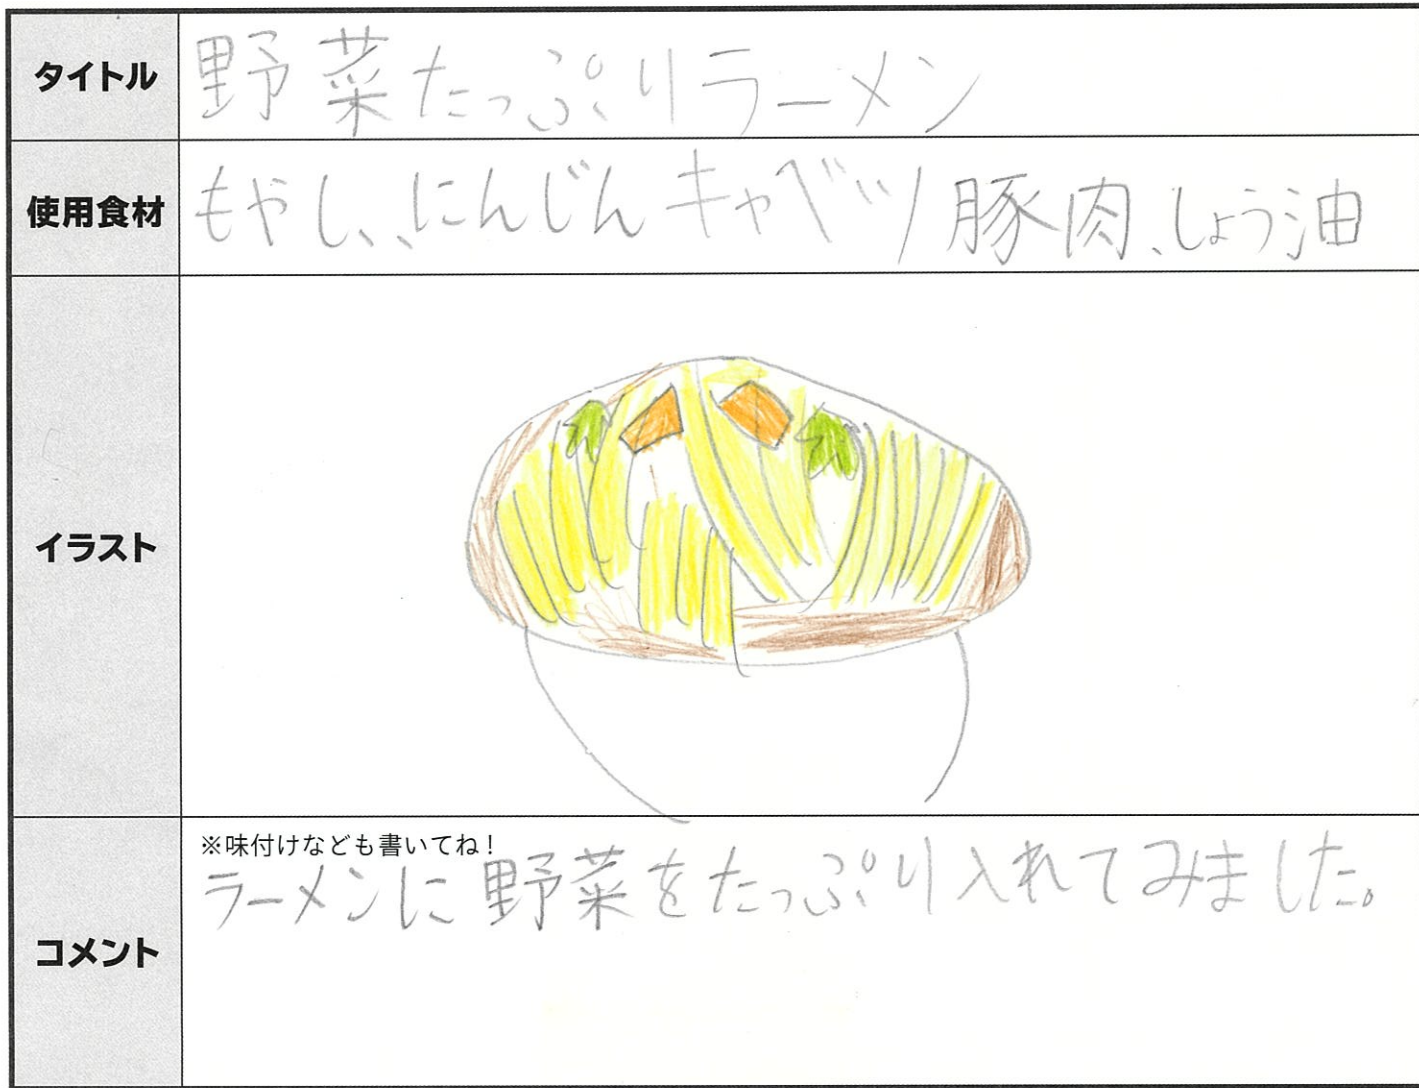 タイトル
野菜たっぷりラーメン
使用食材
もやし、、にんじんキャベツ豚肉、しょう油
イラスト
※味付けなども書いてね!
ラーメンに野菜をたっぷり入れてみました。
コメント